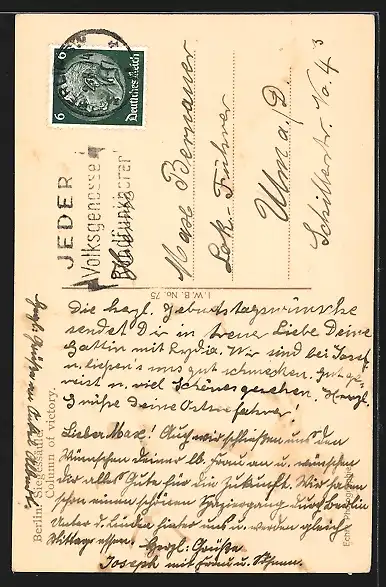 Deutsches Reich
6 6
JEDER
Volksgenosse
Rundfunkhörer
Max Bernauer
Lok-Führer
Ulm a/D.
Schillerstr. No. 4
I.W.B. No. 75
Berlin. Siegessäule
Column of victory.
Die herzl. Geburtstagswünsche
sendet Dir in treuer Liebe Deine
Gattin mit Lydia. Wir sind bei Josef
u. liessen's uns gut schmecken. Gut ge-
reist u. viel Schönes gesehen. Herzl.
Grüße Deine
Lieber Max! Auch wir schließen uns den
Wünschen Deiner lb. Frau an u. wünschen
dir alles Gute für die Zukunft. Wir haben
schon einen schönen Spaziergang durch Berlin
Unter d. Linden hinter uns u. werden gleich
Mittag essen. Herzl. Grüße
Joseph mit Frau u.